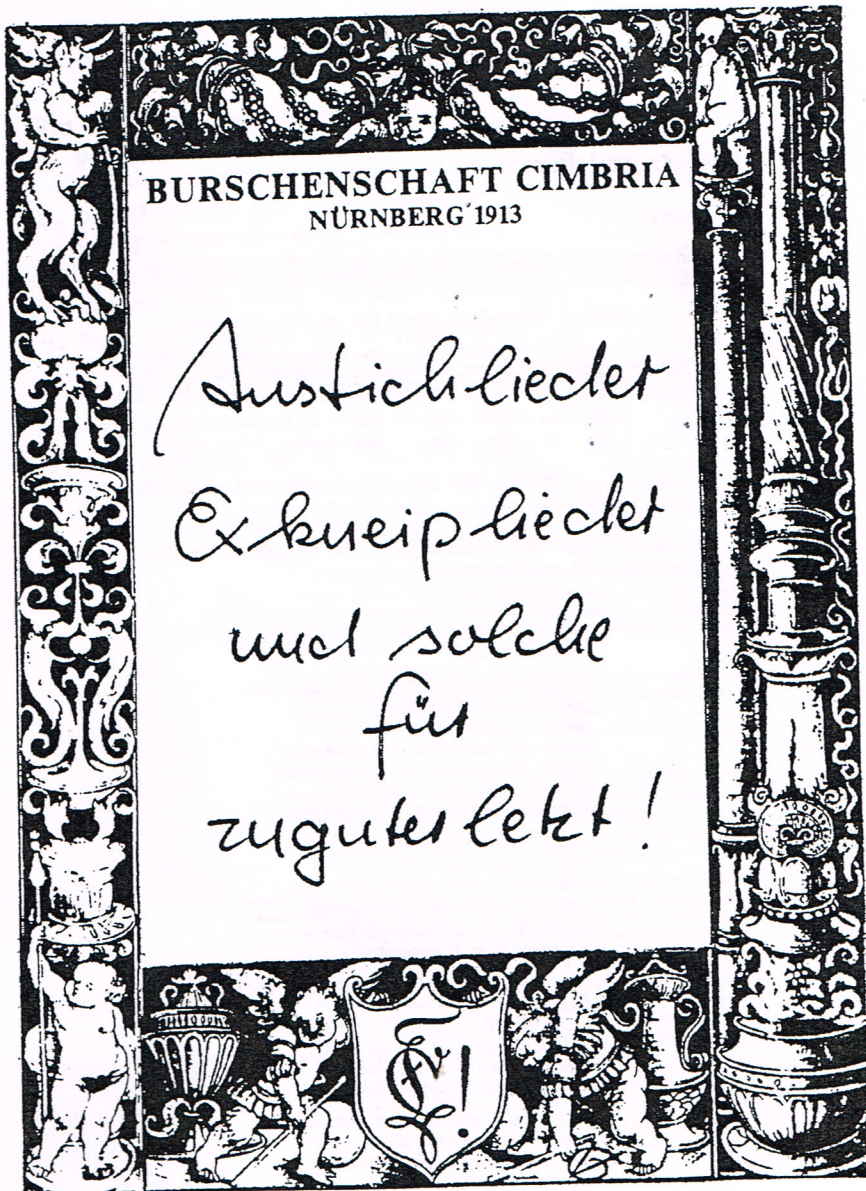 BURSCHENSCHAFT CIMBRIA
NÜRNBERG 1913
Anstichlieder
Exkneiplieder
und solche
für
zuguterletzt!